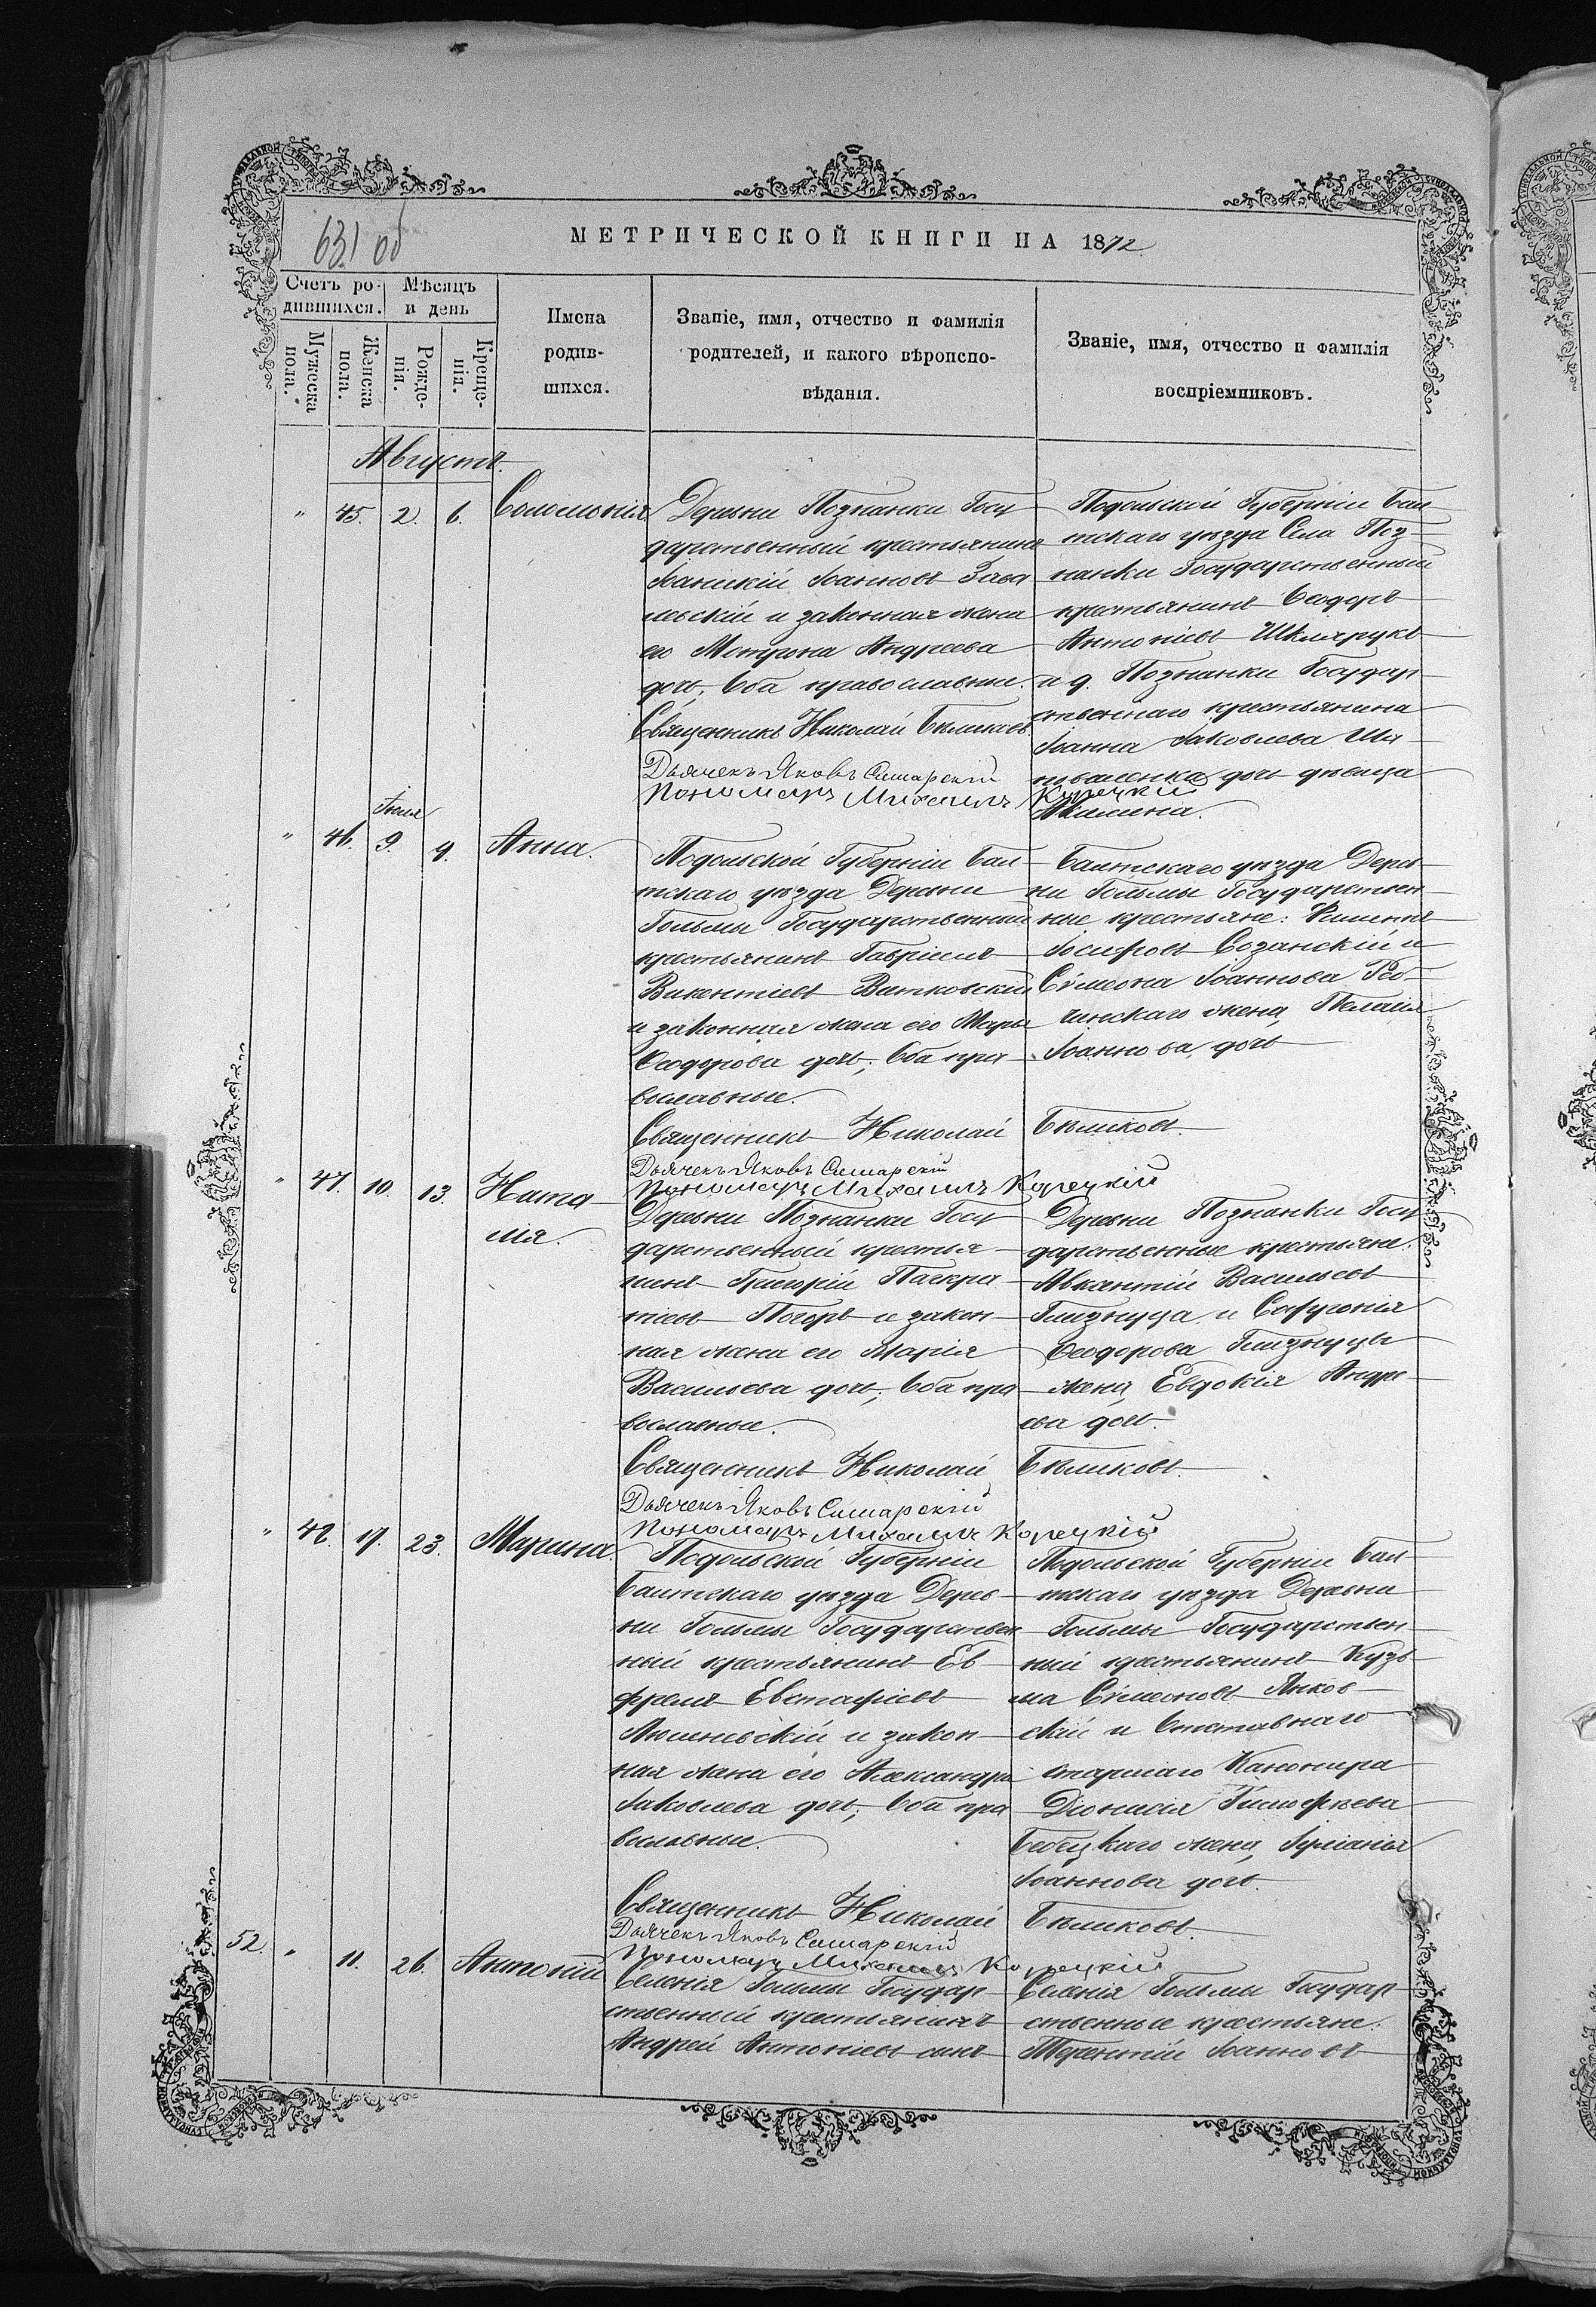 631 об
МЕТРИЧЕСКОЙ КНИГИ НА 1872
Счетъ ро-
дившихся.
Мѣсяцъ
и день
Мужеска
пола.
Женска
пола.
Рожде-
нія.
Креще-
нія.
Имена
родив-
шихся.
Званіе, имя, отчество и фамилія
родителей, и какого вѣроиспо-
вѣданія.
Званіе, имя, отчество и фамилія
воспріемниковъ.
Августъ.
" 45. 2. 6.
Соломонія
Деревни Познанки Госу
дарственный крестьянинъ
Іоанникій Іоанновъ
и законная жена
его Мотрона Андреева
дочь, Оба православные.
Священникъ Николай Бѣликовъ
Дьячекъ Яковъ Самарскій
Пономарь Михаилъ Корецкій
Подольской Губерніи Бал
тскаго уѣзда Села Поз
нанки Государственный
крестьянинъ Ѳеодоръ
Антоніевъ Шклярукъ
и д. Познанки Государ
ственнаго крестьянина
Іоанна Іаковлева
дочь дѣвица
Акилина.
Іюля
" 46. 9. 9.
Анна.
Подольской Губерніи Бал
тскаго уѣзда Деревни
Гольмы Государственный
крестьянинъ Гавріилъ
Викентіевъ Витковскій
и законная жена его Марія
Ѳеодорова дочь; Оба пра
вославные.
Священникъ Николай Бѣликовъ.
Дьячекъ Яковъ Самарскій
Пономарь Михаилъ Корецкій
Балтскаго уѣзда Дерев
ни Гольмы Государствен
ные крестьяне: Филиппъ
Іосифовъ Созанскій и
Сѵмеона Іоаннова
жена, Пелагія
Іоаннова дочь
" 47. 10. 13.
Ната
лія.
Деревни Познанки Госу
дарственный крестья
нинъ Григорій Панкра
тіевъ и закон
ная жена его Марія
Васильева дочь; Оба пра
вославные.
Священникъ Николай Бѣликовъ.
Дьячекъ Яковъ Самарскій
Пономарь Михаилъ Корецкій
Деревни Познанки Госу
дарственные крестьяне:
Авксентій Васильевъ
Близнуца и Софронія
Ѳеодорова Близнуцы
жена, Евдокія Андре
ева дочь.
" 48. 19. 23.
Марина.
Подольской Губерніи
Балтскаго уѣзда Дерев
ни Гольмы Государствен
ный крестьянинъ Еф
фремъ Евстафіевъ
и закон
ная жена его Александра
Іаковлева дочь; Оба пра
вославные.
Священникъ Николай Бѣликовъ.
Дьячекъ Яковъ Самарскій
Пономарь Михаилъ Корецкій
Подольской Губерніи Бал
тскаго уѣзда Деревни
Гольмы Государствен
ный крестьянинъ Кузь
ма Сѵмеоновъ Янков
скій и Отставнаго
старшаго Канонира
Діонисія Тимофѣева
жена,
Іоаннова дочь.
52. " 11. 26.
Антоній
Селенія Гольмы Государ
ственный крестьянинъ
Андрей Антоніевъ
Селенія Гольмы Государ
ственные крестьяне:
Терентій Іоанновъ